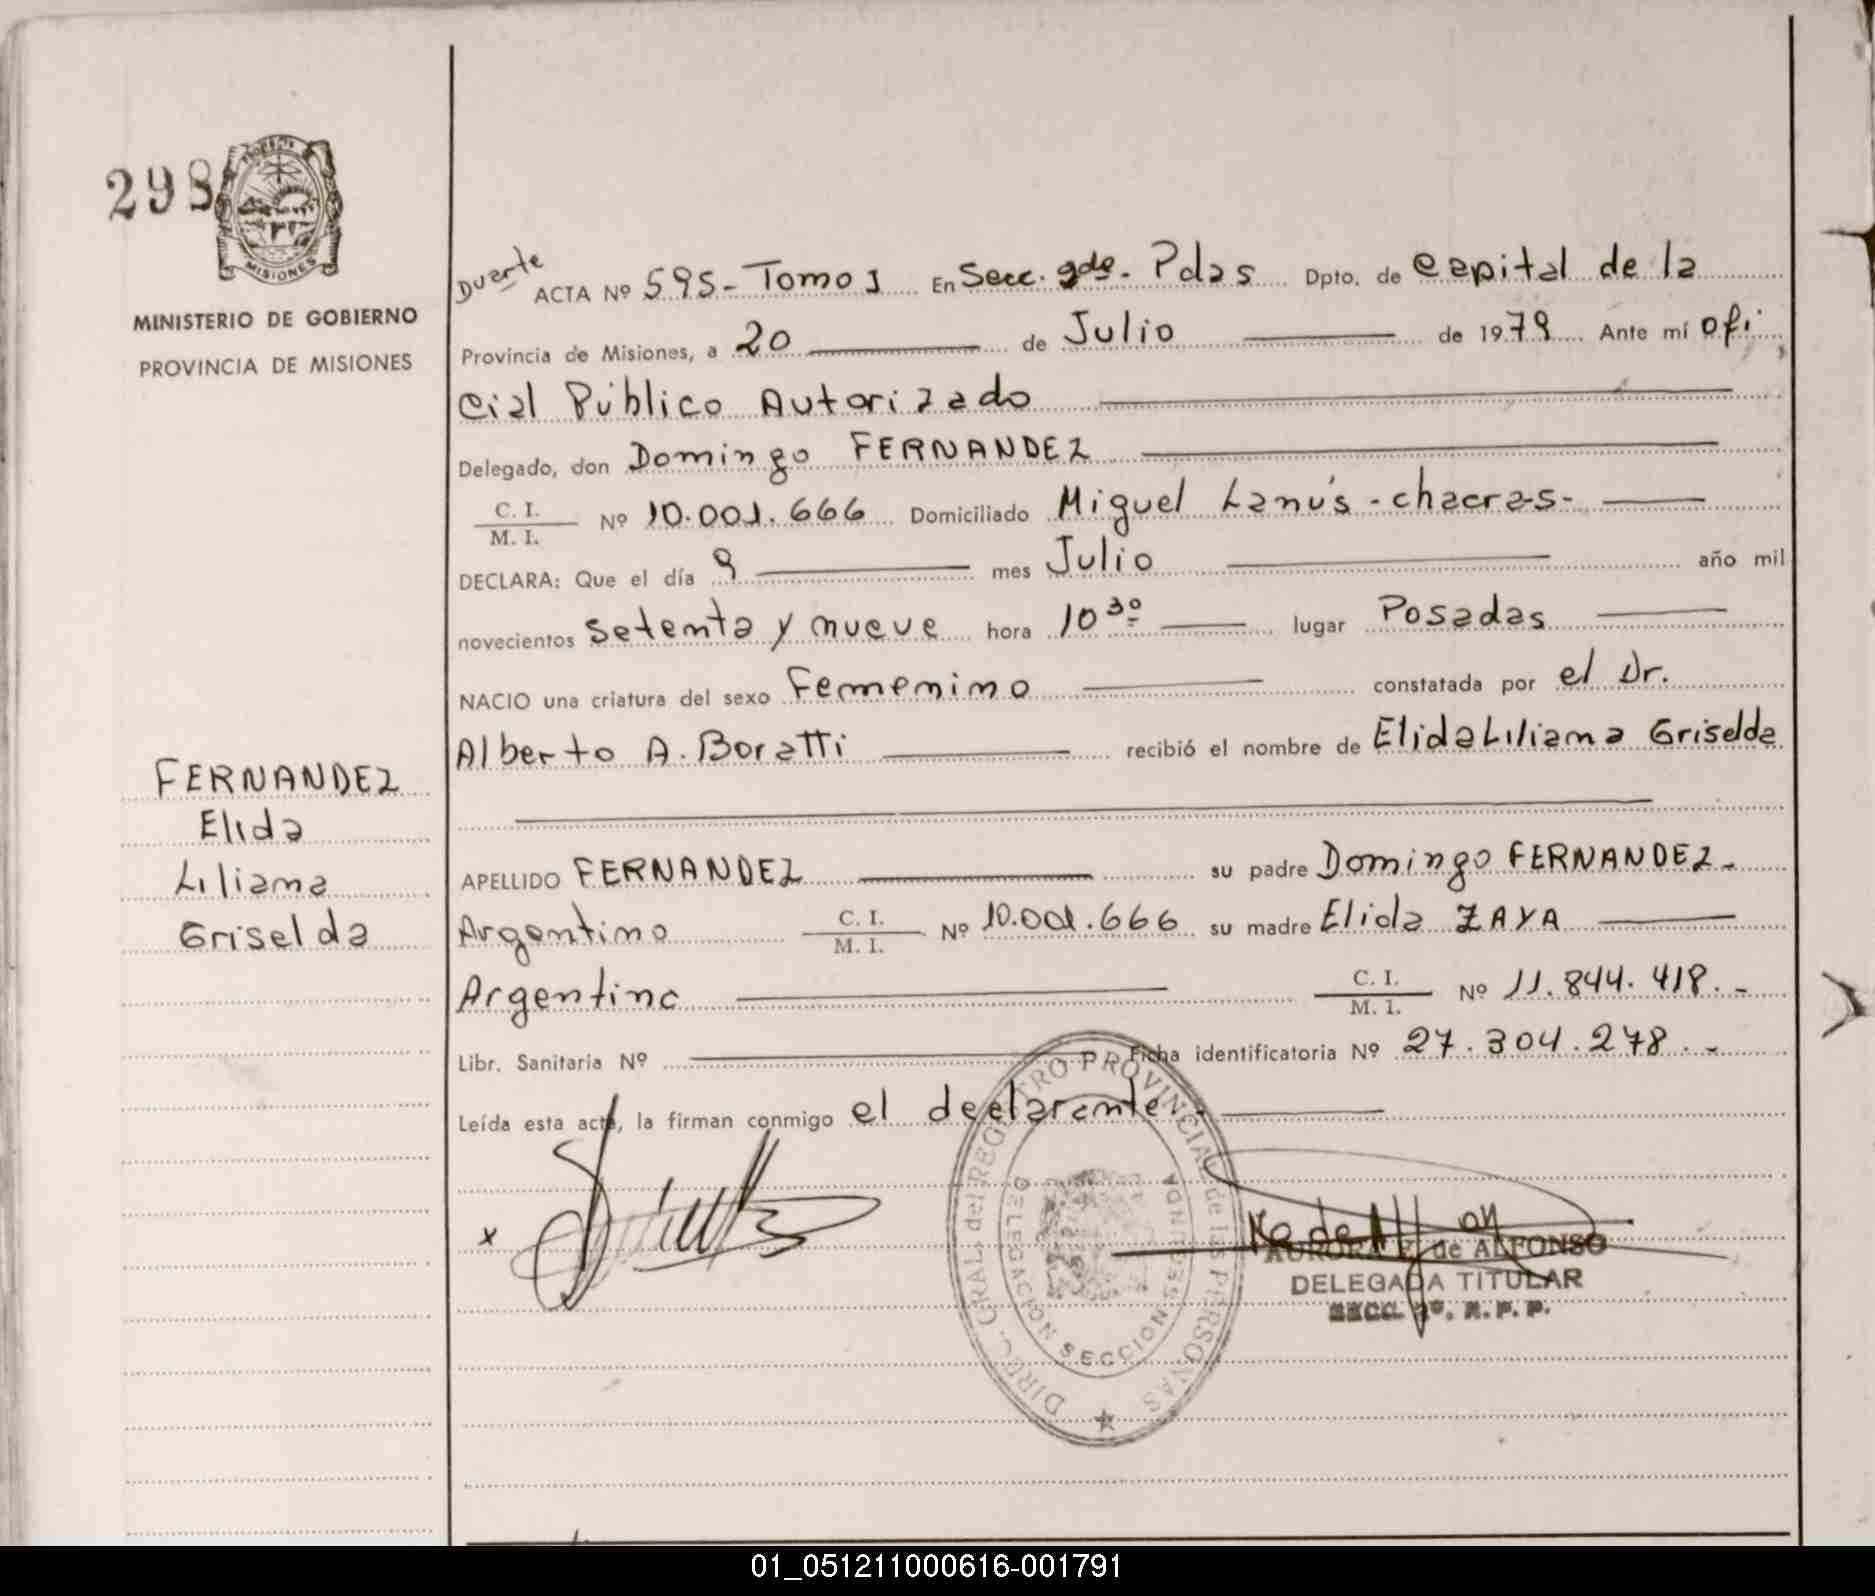 298
PROVINCIA DE
MISIONES
MINISTERIO DE GOBIERNO
PROVINCIA DE MISIONES
FERNANDEZ
Elida
Liliana
Griselda
Duarte
ACTA Nº 595-Tomo 1 En Secc. 2da. Pdas Dpto. de Capital de la
Provincia de Misiones, a 20 de Julio de 1979 Ante mí ofi
cial Público Autorizado
Delegado, don Domingo FERNANDEZ
C. I.
M. I.
Nº 10.001.666 Domiciliado Miguel Lanús -chacras-
DECLARA: Que el día 9 mes Julio año mil
novecientos setenta y nueve hora 10 30 lugar Posadas
NACIO una criatura del sexo Femenino constatada por el Dr.
Alberto A. Boratti recibió el nombre de Elida Liliana Griselda
APELLIDO FERNANDEZ su padre Domingo FERNANDEZ-
Argentino C. I. M. I. Nº 10.001.666 su madre Elida ZAYA
Argentina C. I. M. I. Nº 11.844.418.-
Libr. Sanitaria Nº Ficha identificatoria Nº 27.304.278.-
Leída esta acta, la firman conmigo el declarante.-
x
DIREC. GRAL. del REGISTRO PROVINCIAL de las PERSONAS
DELEGACION SECCION SEGUNDA
AURORA de ALFONSO
DELEGADA TITULAR
SECC. 2º. R. P. P.
01_051211000616-001791